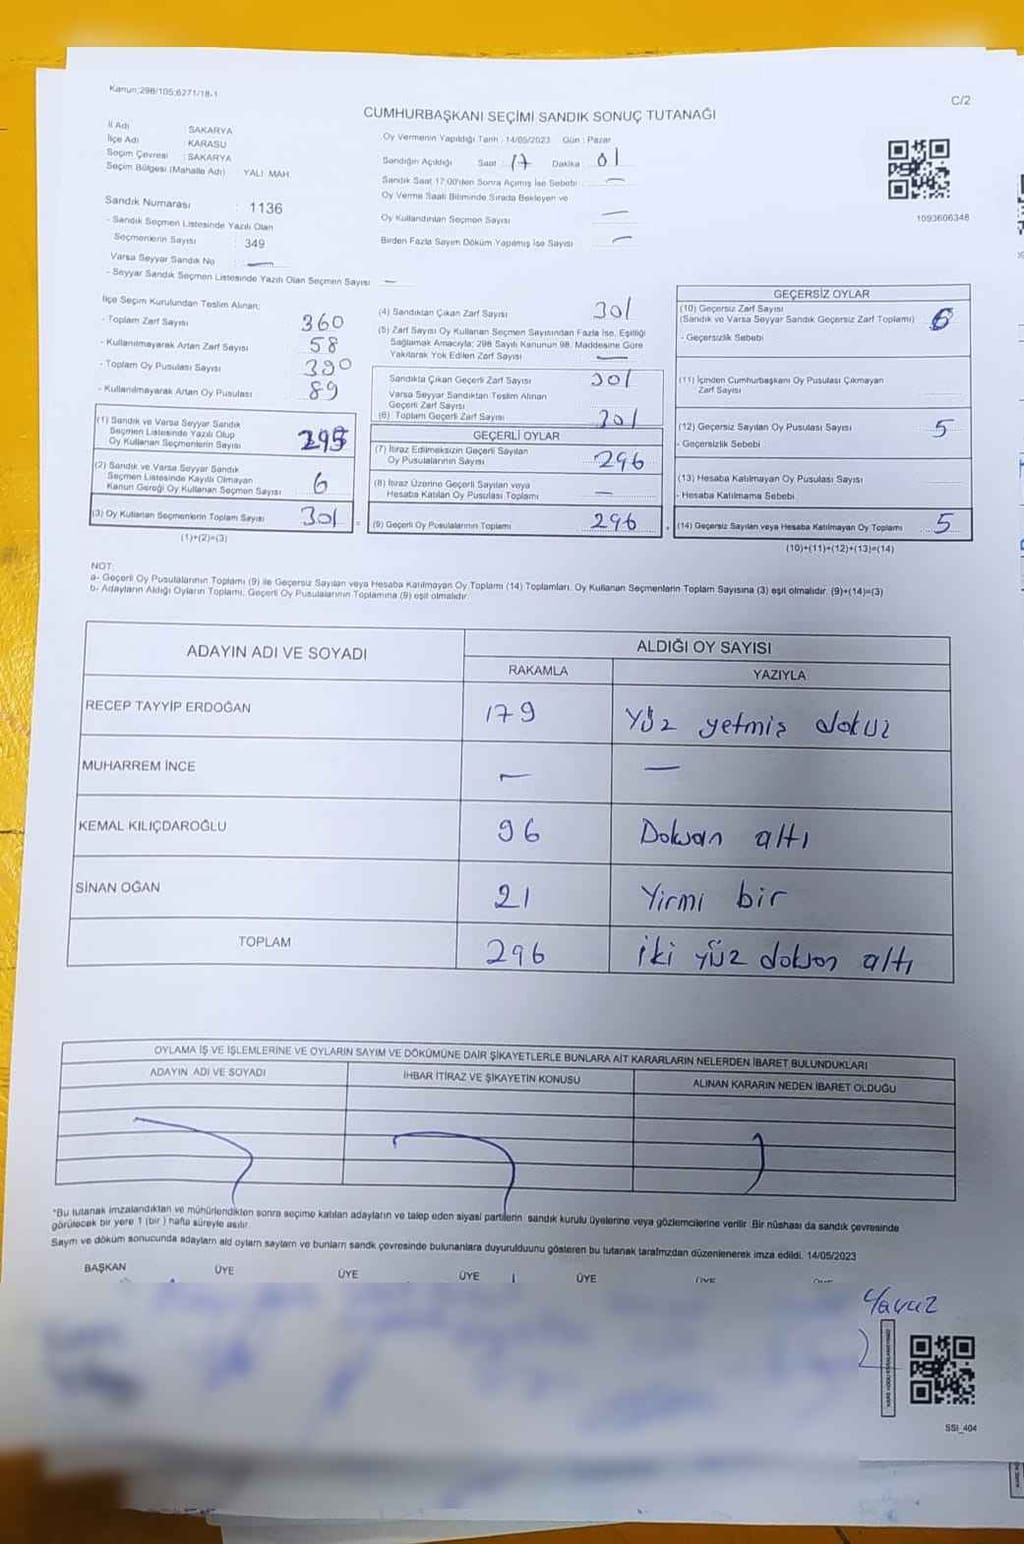 Kanun:298/105;6271/18-1
C/2
CUMHURBAŞKANI SEÇİMİ SANDIK SONUÇ TUTANAĞI
İl Adı : SAKARYA
İlçe Adı : KARASU
Seçim Çevresi : SAKARYA
Seçim Bölgesi (Mahalle Adı) YALI MAH.
Sandık Numarası : 1136
- Sandık Seçmen Listesinde Yazılı Olan
Seçmenlerin Sayısı : 349
Varsa Seyyar Sandık No —
- Seyyar Sandık Seçmen Listesinde Yazılı Olan Seçmen Sayısı —
Oy Vermenin Yapıldığı Tarih : 14/05/2023 Gün : Pazar
Sandığın Açıldığı Saat : 17 Dakika 01
Sandık Saat 17:00'den Sonra Açılmış İse Sebebi —
Oy Verme Saati Bitiminde Sırada Bekleyen ve
Oy Kullandırılan Seçmen Sayısı —
Birden Fazla Sayım Döküm Yapılmış İse Sayısı —
1093606348
İlçe Seçim Kurulundan Teslim Alınan;
- Toplam Zarf Sayısı 360
- Kullanılmayarak Artan Zarf Sayısı 58
- Toplam Oy Pusulası Sayısı 390
- Kullanılmayarak Artan Oy Pusulası 89
(1) Sandık ve Varsa Seyyar Sandık
Seçmen Listesinde Yazılı Olup
Oy Kullanan Seçmenlerin Sayısı 295
(2) Sandık ve Varsa Seyyar Sandık
Seçmen Listesinde Kayıtlı Olmayan
Kanun Gereği Oy Kullanan Seçmen Sayısı 6
(3) Oy Kullanan Seçmenlerin Toplam Sayısı 301
(1)+(2)=(3)
(4) Sandıktan Çıkan Zarf Sayısı 301
(5) Zarf Sayısı Oy Kullanan Seçmen Sayısından Fazla İse, Eşitliği
Sağlamak Amacıyla; 298 Sayılı Kanunun 98. Maddesine Göre
Yakılarak Yok Edilen Zarf Sayısı —
Sandıkta Çıkan Geçerli Zarf Sayısı 301
Varsa Seyyar Sandıktan Teslim Alınan
Geçerli Zarf Sayısı
(6) Toplam Geçerli Zarf Sayısı 301
GEÇERLİ OYLAR
(7) İtiraz Edilmeksizin Geçerli Sayılan
Oy Pusulalarının Sayısı 296
(8) İtiraz Üzerine Geçerli Sayılan veya
Hesaba Katılan Oy Pusulası Toplamı —
(9) Geçerli Oy Pusulalarının Toplamı 296
GEÇERSİZ OYLAR
(10) Geçersiz Zarf Sayısı
(Sandık ve Varsa Seyyar Sandık Geçersiz Zarf Toplamı)
- Geçersizlik Sebebi
(11) İçinden Cumhurbaşkanı Oy Pusulası Çıkmayan
Zarf Sayısı
(12) Geçersiz Sayılan Oy Pusulası Sayısı 5
- Geçersizlik Sebebi
(13) Hesaba Katılmayan Oy Pusulası Sayısı
- Hesaba Katılmama Sebebi
(14) Geçersiz Sayılan veya Hesaba Katılmayan Oy Toplamı 5
(10)+(11)+(12)+(13)=(14)
NOT:
a- Geçerli Oy Pusulalarının Toplamı (9) ile Geçersiz Sayılan veya Hesaba Katılmayan Oy Toplamı (14) Toplamları, Oy Kullanan Seçmenlerin Toplam Sayısına (3) eşit olmalıdır. (9)+(14)=(3)
b- Adayların Aldığı Oyların Toplamı, Geçerli Oy Pusulalarının Toplamına (9) eşit olmalıdır.
ADAYIN ADI VE SOYADI ALDIĞI OY SAYISI
RAKAMLA YAZIYLA
RECEP TAYYİP ERDOĞAN 179 Yüz yetmiş dokuz
MUHARREM İNCE — —
KEMAL KILIÇDAROĞLU 96 Doksan altı
SİNAN OĞAN 21 Yirmi bir
TOPLAM 296 iki yüz doksan altı
OYLAMA İŞ VE İŞLEMLERİNE VE OYLARIN SAYIM VE DÖKÜMÜNE DAİR ŞİKAYETLERLE BUNLARA AİT KARARLARIN NELERDEN İBARET BULUNDUKLARI
ADAYIN ADI VE SOYADI İHBAR İTİRAZ VE ŞİKAYETİN KONUSU ALINAN KARARIN NEDEN İBARET OLDUĞU
"Bu tutanak imzalandıktan ve mühürlendikten sonra seçime katılan adayların ve talep eden siyasi partilerin sandık kurulu üyelerine veya gözlemcilerine verilir. Bir nüshası da sandık çevresinde
görülecek bir yere 1 (bir ) hafta süreyle asılır.
Sayım ve döküm sonucunda adayların ald oyların sayların ve bunların sandk çevresinde bulunanlara duyurulduunu gösteren bu tutanak tarafmzdan düzenlenerek imza edildi. 14/05/2023
BAŞKAN ÜYE ÜYE ÜYE ÜYE ÜYE
Yavuz
SSI_404